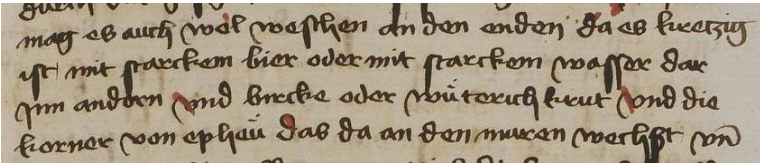 mag es auch wol weschen an den enden da es kretzig
ist mit starckem bier oder mit starckem wasser dar
jnn andorn vnd bircke oder wüterich krut vnd die
korner von epheü das da an den muren wechßt vn̄